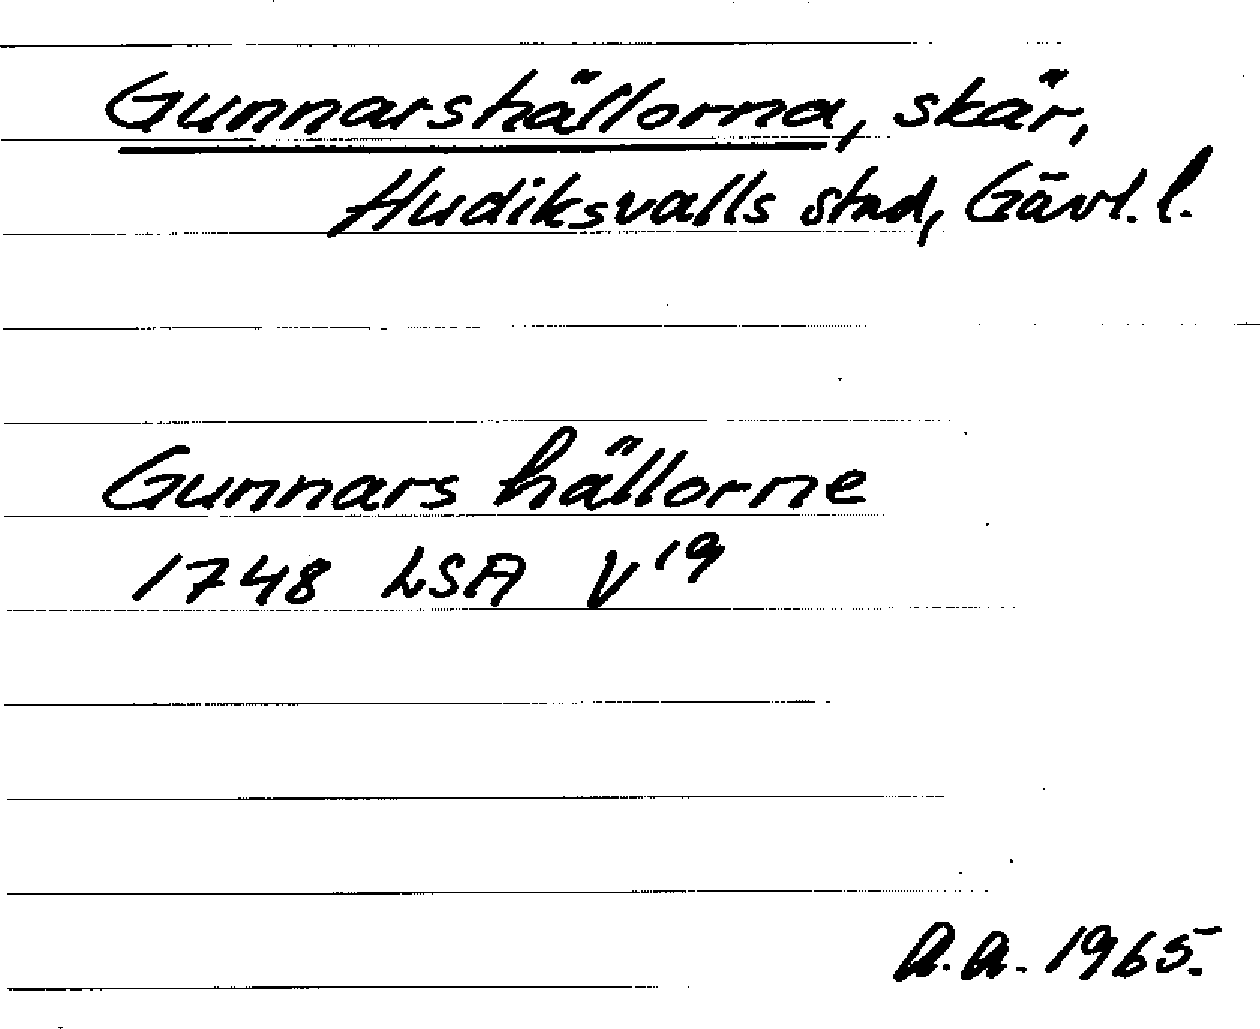 Gunnarshällorna, skär,
Hudiksvalls stad, Gävl. l.
Gunnars hällorne
1748 LSA V¹⁹
A.A. 1965.